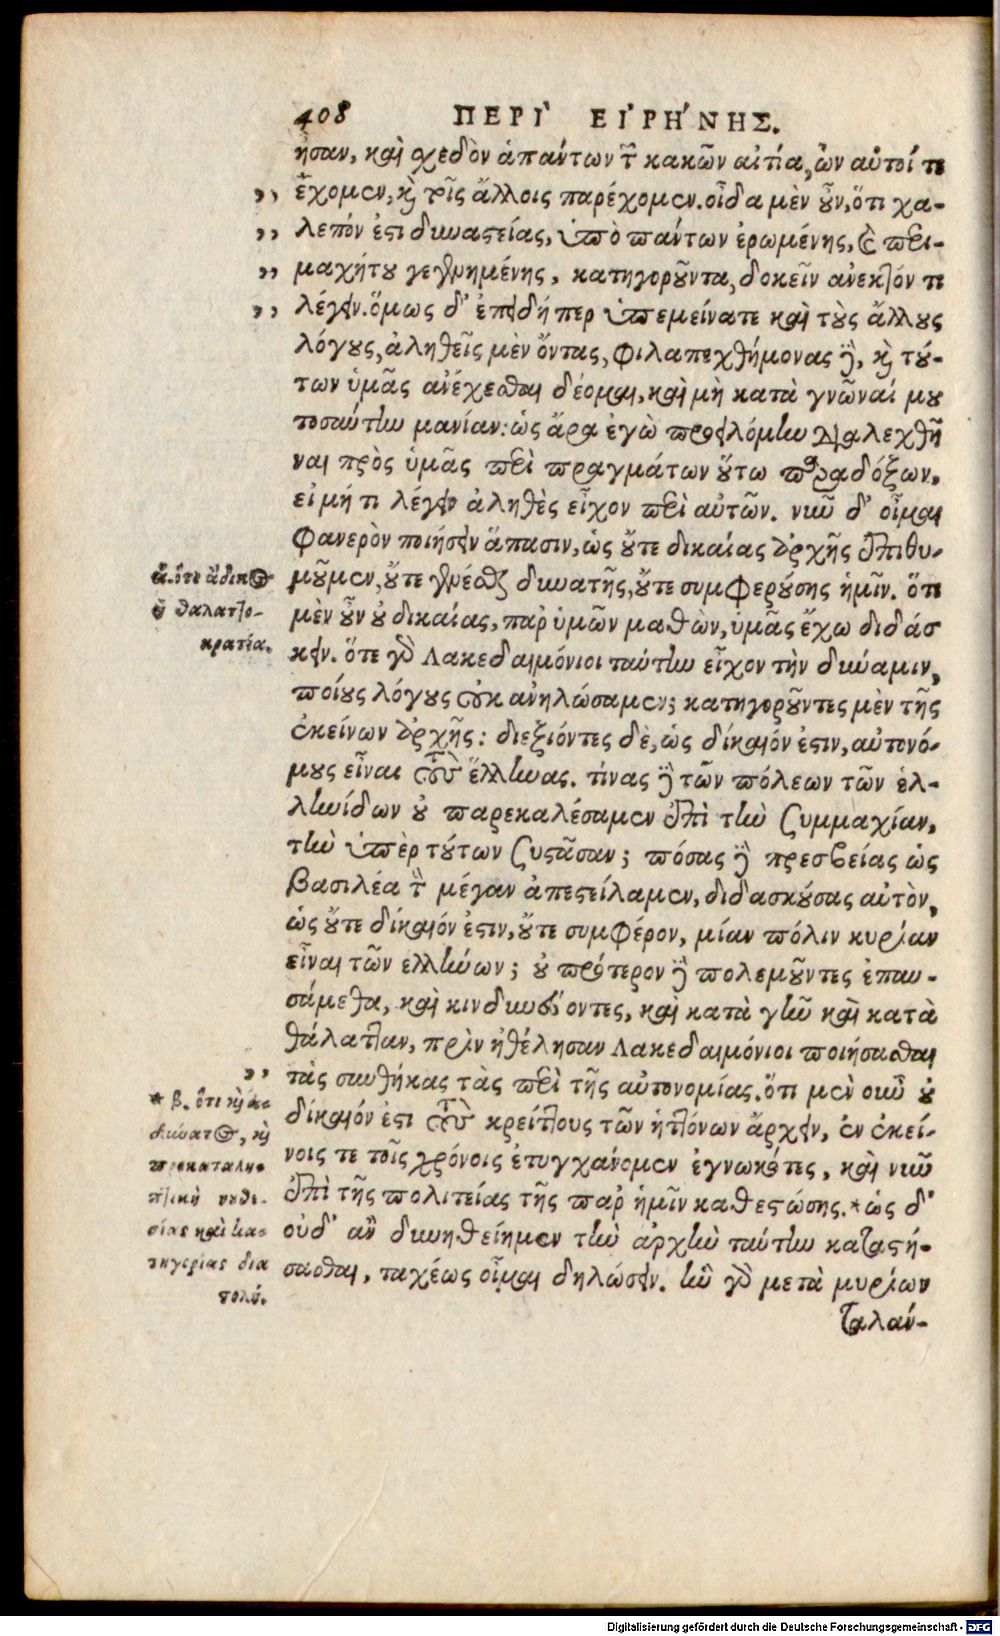 408 ΠΕΡῚ ΕἸΡΉΝΗΣ.
ησαν, καὶ σχεδὸν ἁπάντων τῶν κακῶν αἰτία, ὧν αὐτοί τε
,, ἔχομεν, καὶ τοῖς ἄλλοις παρέχομεν. οἶδα μὲν οὖν, ὅτι χα-
,, λεπόν ἐστι δυναστείας, ὑπὸ πάντων ἐρωμένης, καὶ περι-
,, μαχήτου γεγενημένης, κατηγοροῦντα, δοκεῖν ἀνεκτόν τι
,, λέγειν. ὅμως δ' ἐπειδήπερ ὑπεμείνατε καὶ τοὺς ἄλλους
λόγους, ἀληθεῖς μὲν ὄντας, φιλαπεχθήμονας δὲ, καὶ τού-
των ὑμᾶς ἀνέχεσθαι δέομαι, καὶ μὴ καταγνῶναί μου
τοσαύτην μανίαν: ὡς ἄρα ἐγὼ προειλόμην διαλεχθῆ
ναι πρὸς ὑμᾶς περὶ πραγμάτων οὕτω παραδόξων,
εἰ μή τι λέγειν ἀληθὲς εἶχον περὶ αὐτῶν. νῦν δ' οἶμαι
φανερὸν ποιήσειν ἅπασιν, ὡς οὔτε δικαίας ἀρχῆς ἐπιθυ-
μοῦμεν, οὔτε γενέσθαι δυνατῆς, οὔτε συμφερούσης ἡμῖν. ὅτι
μὲν οὖν οὐ δικαίας, παρ' ὑμῶν μαθὼν, ὑμᾶς ἔχω διδάσ
κειν. ὅτε γὰρ Λακεδαιμόνιοι ταύτην εἶχον τὴν δύναμιν,
ποίους λόγους οὐκ ἀνηλώσαμεν; κατηγοροῦντες μὲν τῆς
ἐκείνων ἀρχῆς: διεξιόντες δὲ, ὡς δίκαιόν ἐστιν, αὐτονό-
μους εἶναι τοὺς ἕλληνας. τίνας δὲ τῶν πόλεων τῶν ἑλ-
ληνίδων οὐ παρεκαλέσαμεν ἐπὶ τὴν συμμαχίαν,
τὴν ὑπὲρ τούτων συστᾶσαν; πόσας δὲ πρεσβείας ὡς
βασιλέα τὸν μέγαν ἀπεστείλαμεν, διδασκούσας αὐτὸν,
ὡς οὔτε δίκαιόν ἐστιν, οὔτε συμφέρον, μίαν πόλιν κυρίαν
εἶναι τῶν ελλήνων; οὐ πρότερον δὲ πολεμοῦντες ἐπαυ-
σάμεθα, καὶ κινδυνεύοντες, καὶ κατὰ γῆν καὶ κατὰ
θάλατταν, πρὶν ἠθέλησαν Λακεδαιμόνιοι ποιήσασθαι
,, τὰς συνθήκας τὰς περὶ τῆς αὐτονομίας. ὅτι μὲν οὖν οὐ
δίκαιόν ἐστι τοὺς κρείττους τῶν ἡττόνων ἄρχειν, ἐν ἐκεί-
νοις τε τοῖς χρόνοις ἐτυγχάνομεν ἐγνωκότες, καὶ νῦν
ἐπὶ τῆς πολιτείας τῆς παρ' ἡμῖν καθεστώσης. * ὡς δ'
οὐδ' ἂν δυνηθείημεν τὴν ἀρχὴν ταύτην καταστή-
σασθαι, ταχέως οἶμαι δηλώσειν. ἣν γὰρ μετὰ μυρίων
ταλάν-
α. ὅτι ἄδικος
ἡ θαλαττο-
κρατία.
* β. ὅτι καὶ ἀ-
δύνατος, καὶ
προκαταλη-
πτικὴ νουθε-
σίας καὶ κα-
τηγορίας δια
τολύ.
Digitalisierung gefördert durch die Deutsche Forschungsgemeinschaft - DFG